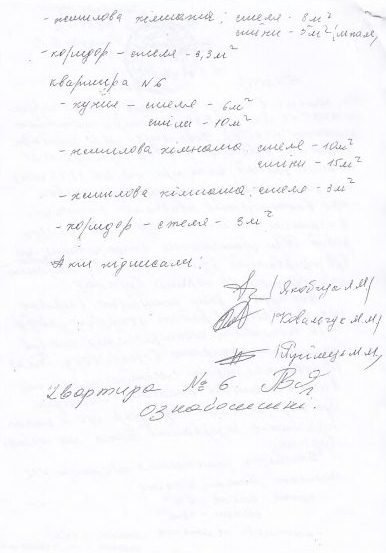 - житлова кімната; стеля - 8 м²
стіни - 5 м² (шпале)
- коридор - стеля - 3,3 м²
квартира № 6
- кухня - стеля - 6 м²
стіни - 10 м²
- житлова кімната стеля - 10 м²
стіни - 15 м²
- житлова кімната; стеля - 3 м²
- коридор - стеля - 3 м²
Акт підписали:
/Якобчук А.М/
/Ковальчук М.М/
М.М/
Квартира № 6
ознайомлені.